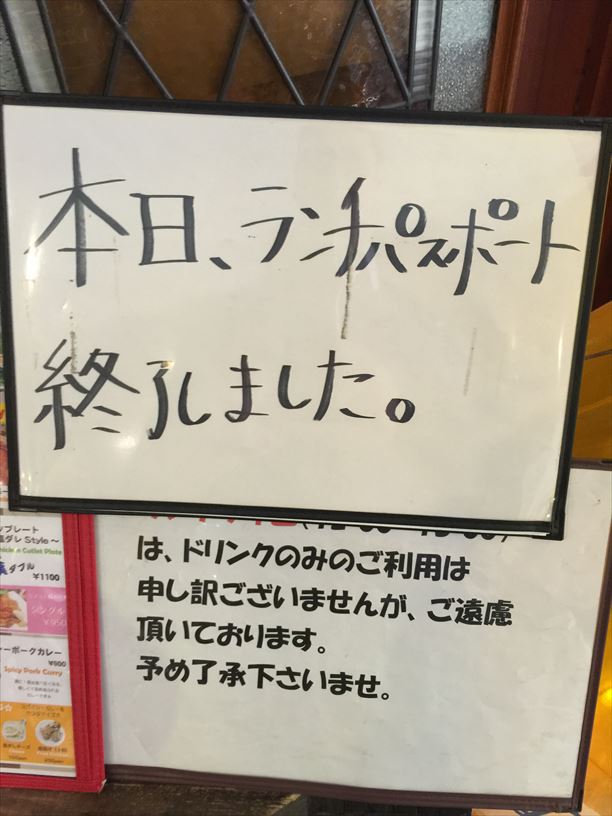 本日、ランチパスポート
終了しました。
は、ドリンクのみのご利用は
申し訳ございませんが、ご遠慮
頂いております。
予め了承下さいませ。
プレート
ダレ Style～
Cutlet Plate
ダブル
￥1100
シングル
￥950
ーポークカレー
Spicy Pork Curry